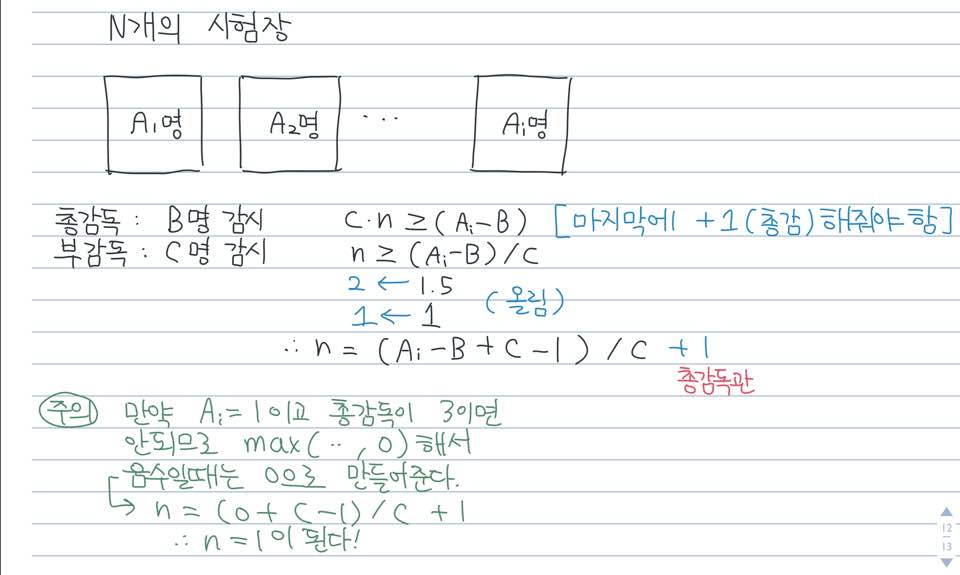 N개의 시험장
A₁명 A₂명 ··· Aᵢ명
총감독 : B명 감시 C·n ≥ (Aᵢ-B) [마지막에 +1(총감)해줘야함]
부감독 : C명 감시 n ≥ (Aᵢ-B)/C
2 ← 1.5
1 ← 1 (올림)
∴ n = (Aᵢ-B+C-1)/C +1
총감독관
주의 만약 Aᵢ=1이고 총감독이 3이면
안되므로 max(··, 0)해서
음수일때는 0으로 만들어준다.
→ n = (0+C-1)/C +1
∴ n=1이 된다!
12
13